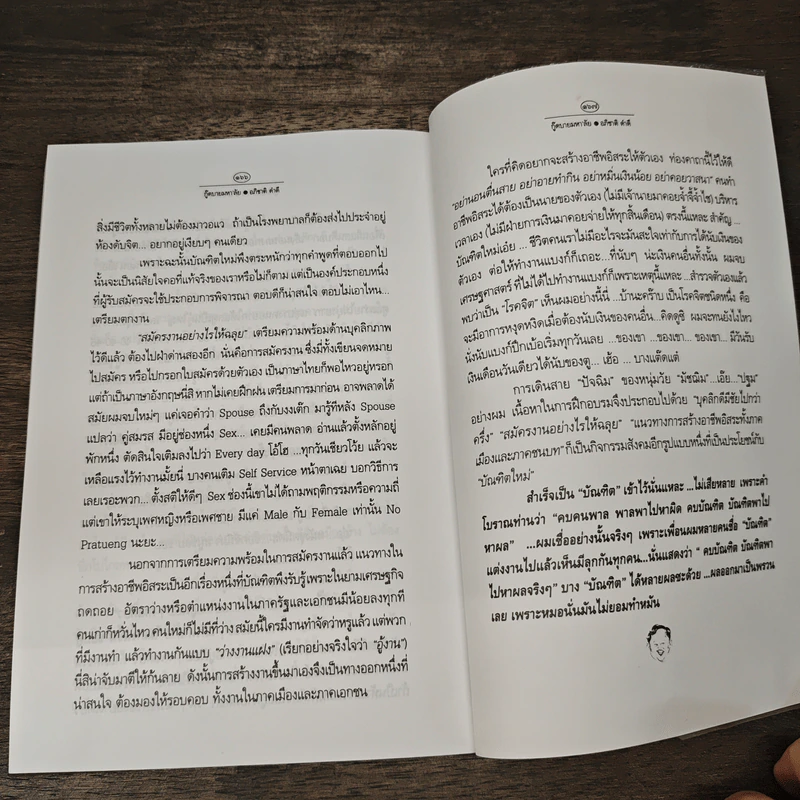 ๑๖๖
กู๊ดบายมหา'ลัย ● อภิชาติ ดำดี
สิ่งมีชีวิตทั้งหลายไม่ต้องมาวอแว ถ้าเป็นโรงพยาบาลก็ต้องส่งไปประจำอยู่
ห้องดับจิต... อยากอยู่เงียบๆ คนเดียว
เพราะฉะนั้นบัณฑิตใหม่พึงตระหนักว่าทุกคำพูดที่ตอบออกไป
นั้นจะเป็นนิสัยใจคอที่แท้จริงของเราหรือไม่ก็ตาม แต่เป็นองค์ประกอบหนึ่ง
ที่ผู้รับสมัครจะใช้ประกอบการพิจารณา ตอบดีก็น่าสนใจ ตอบไม่เอาไหน...
เตรียมตกงาน
"สมัครงานอย่างไรให้ฉลุย" เตรียมความพร้อมด้านบุคลิกภาพ
ไว้ดีแล้ว ต้องไปฝ่าด่านสองอีก นั่นคือการสมัครงาน ซึ่งมีทั้งเขียนจดหมาย
ไปสมัคร หรือไปกรอกใบสมัครด้วยตัวเอง เป็นภาษาไทยก็พอไหวอยู่หรอก
แต่ถ้าเป็นภาษาอังกฤษนี่สิ หากไม่เคยฝึกฝน เตรียมการมาก่อน อาจพลาดได้
สมัยผมจบใหม่ๆ แค่เจอคำว่า Spouse ถึงกับงงเต๊ก มารู้ทีหลัง Spouse
แปลว่า คู่สมรส มีอยู่ช่องหนึ่ง Sex... เคยมีคนพลาด อ่านแล้วตั้งหลักอยู่
พักหนึ่ง ตัดสินใจเติมลงไปว่า Every day โอ้โฮ ...ทุกวันเชียวโว้ย แล้วจะ
เหลือแรงไว้ทำงานมั้ยนี่ บางคนเติม Self Service หน้าตาเฉย บอกวิธีการ
เลยเรอะพวก... ตั้งสติให้ดีๆ Sex ช่องนี้เขาไม่ได้ถามพฤติกรรมหรือความถี่
แต่เขาให้ระบุเพศหญิงหรือเพศชาย มีแค่ Male กับ Female เท่านั้น No
Pratueng นะยะ...
นอกจากการเตรียมความพร้อมในการสมัครงานแล้ว แนวทางใน
การสร้างอาชีพอิสระเป็นอีกเรื่องหนึ่งที่บัณฑิตพึงรับรู้เพราะในยามเศรษฐกิจ
ถดถอย อัตราว่างหรือตำแหน่งงานในภาครัฐและเอกชนมีน้อยลงทุกที
คนเก่าก็หวั่นไหว คนใหม่ก็ไม่มีที่ว่าง สมัยนี้ใครมีงานทำจัดว่าหรูแล้ว แต่พวก
ที่มีงานทำ แล้วทำงานกันแบบ "ว่างงานแฝง" (เรียกอย่างจริงใจว่า "อู้งาน")
นี่สิน่าจับมาตีให้ก้นลาย ดังนั้นการสร้างงานขึ้นมาเองจึงเป็นทางออกหนึ่งที่
น่าสนใจ ต้องมองให้รอบคอบ ทั้งงานในภาคเมืองและภาคเอกชน
๑๖๗
กู๊ดบายมหา'ลัย ● อภิชาติ ดำดี
ใครที่คิดอยากจะสร้างอาชีพอิสระให้ตัวเอง ท่องคาถานี้ไว้ให้ดี
"อย่านอนตื่นสาย อย่าอายทำกิน อย่าหมิ่นเงินน้อย อย่าคอยวาสนา" คนทำ
อาชีพอิสระได้ต้องเป็นนายของตัวเอง (ไม่มีเจ้านายมาคอยจ้ำจี้จ้ำไช) บริหาร
เวลาเอง (ไม่มีฝ่ายการเงินมาคอยจ่ายให้ทุกสิ้นเดือน) ตรงนี้แหละ สำคัญ ...
บัณฑิตใหม่เอ๋ย ... ชีวิตคนเราไม่มีอะไรจะมันสะใจเท่ากับการได้นับเงินของ
ตัวเอง ต่อให้ทำงานแบงก์ก็เถอะ...ที่นับๆ น่ะเงินคนอื่นทั้งนั้น ผมจบ
เศรษฐศาสตร์ ที่ไม่ได้ไปทำงานแบงก์ก็เพราะเหตุนี้แหละ ...สำรวจตัวเองแล้ว
พบว่าเป็น "โรคจิต" เห็นผมอย่างนี้นี่ ...บ้านะคร๊าบ เป็นโรคจิตชนิดหนึ่ง คือ
จะมีอาการหงุดหงิดเมื่อต้องนับเงินของคนอื่น...คิดดูซิ ผมจะทนยังไงไหว
นั่งนับแบงก์ปึกเบ้อเริ่มทุกวันเลย ...ของเขา ...ของเขา... ของเขา... มีวันรับ
เงินเดือนวันเดียวได้นับของตู... เฮ้อ ... บางแต๊ดแต๋
การเดินสาย "ปัจฉิม" ของหนุ่มวัย "มัชฌิม"...เอ๊ย..."ปฐม"
อย่างผม เนื้อหาในการฝึกอบรมจึงประกอบไปด้วย "บุคลิกดีมีชัยไปกว่า
ครึ่ง" "สมัครงานอย่างไรให้ฉลุย" "แนวทางการสร้างอาชีพอิสระทั้งภาค
เมืองและภาคชนบท" ก็เป็นกิจกรรมสังคมอีกรูปแบบหนึ่งที่เป็นประโยชน์กับ
"บัณฑิตใหม่"
สำเร็จเป็น "บัณฑิต" เข้าไว้นั่นแหละ ...ไม่เสียหลาย เพราะคำ
โบราณท่านว่า "คบคนพาล พาลพาไปหาผิด คบบัณฑิต บัณฑิตพาไป
หาผล" ...ผมเชื่ออย่างนั้นจริงๆ เพราะเพื่อนผมหลายคนชื่อ "บัณฑิต"
แต่งงานไปแล้วเห็นมีลูกกันทุกคน...นั่นแสดงว่า " คบบัณฑิต บัณฑิตพา
ไปหาผลจริงๆ" บาง "บัณฑิต" ได้หลายผลซะด้วย ...ผลออกมาเป็นพรวน
เลย เพราะหมอนั่นมันไม่ยอมทำหมัน